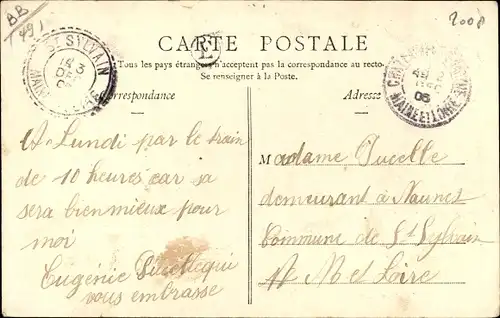 BB
491
2008
CARTE POSTALE
E
Tous les pays étrangers n'acceptent pas la correspondance au recto.
Se renseigner à la Poste.
Correspondance
Adresse
ST SYLVAIN
MAINE ET LOIRE
06
A Lundi par le train
de 10 heures car sa
sera bien mieux pour
moi
Eugénie Pucelle qui
vous embrasse
Madame Pucelle
demeurant à Naunes
Commune de St Sylvain
M et Loire